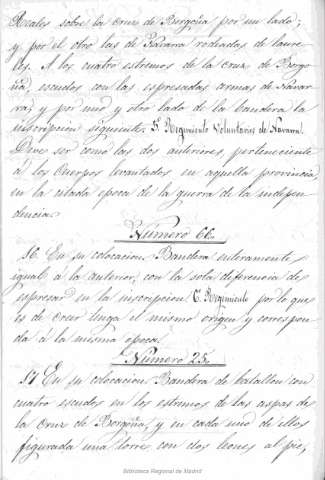 Reales sobre la Cruz de Borgoña por un lado;
y por el otro las de Navarra rodeadas de laure-
les. A los cuatro estremos de la Cruz de Borgo
ña, escudos con las espresadas armas de Navar
ra; y por uno y otro lado de la bandera la
inscripcion siguiente, Regimiento Voluntarios de Navarra.
Debe ser como las dos anteriores, perteneciente
á los Cuerpos levantados en aquella provincia
en la citada epoca de la guerra de la indepen
dencia.
Numero 66.
16 En su colocacion. Bandera enteramente
igual á la anterior, con la sola diferencia de
espresar en la inscripcion Regimiento por lo que
es de creer tenga el mismo origen y correspon-
da á la misma epoca.
Numero 25.
17 En su colocacion. Bandera de batallon con
cuatro escudos en los estremos de las aspas de
la Cruz de Borgoña, y en cada uno de ellos
figurada una torre con dos leones al pie,
Biblioteca Regional de Madrid